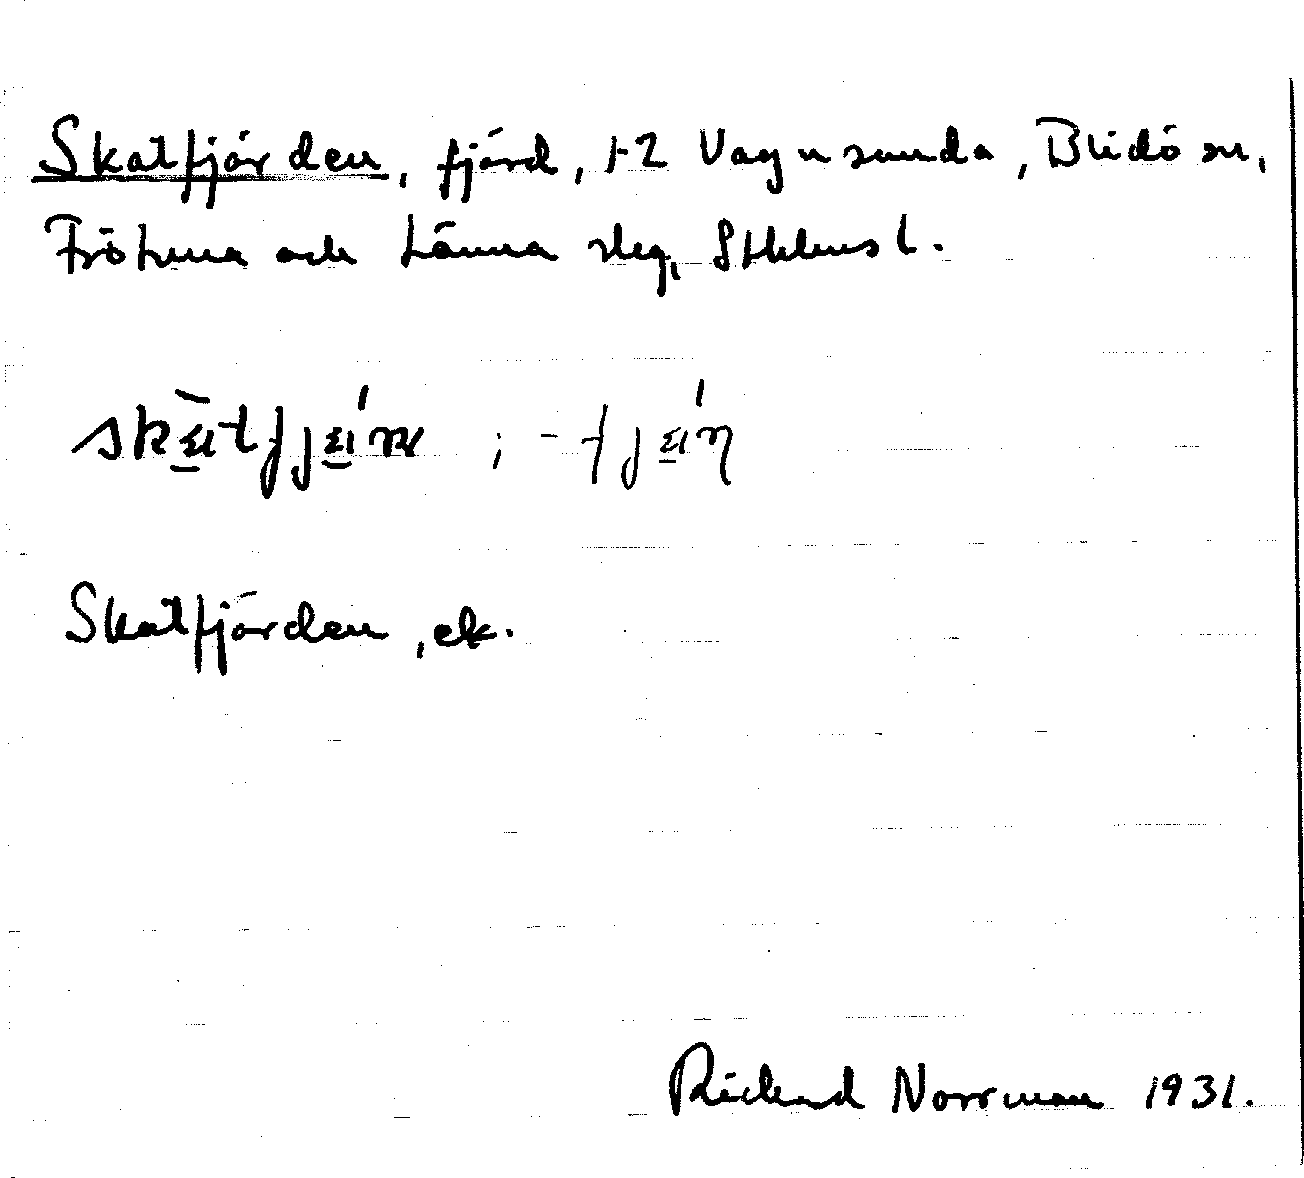 Skatfjärden, fjärd, t-2 Vagnsunda, Blidö sn,
Frötuna och Länna slg, Sthlms l.
Skatfjärden, ek.
Rickard Norrman 1931.